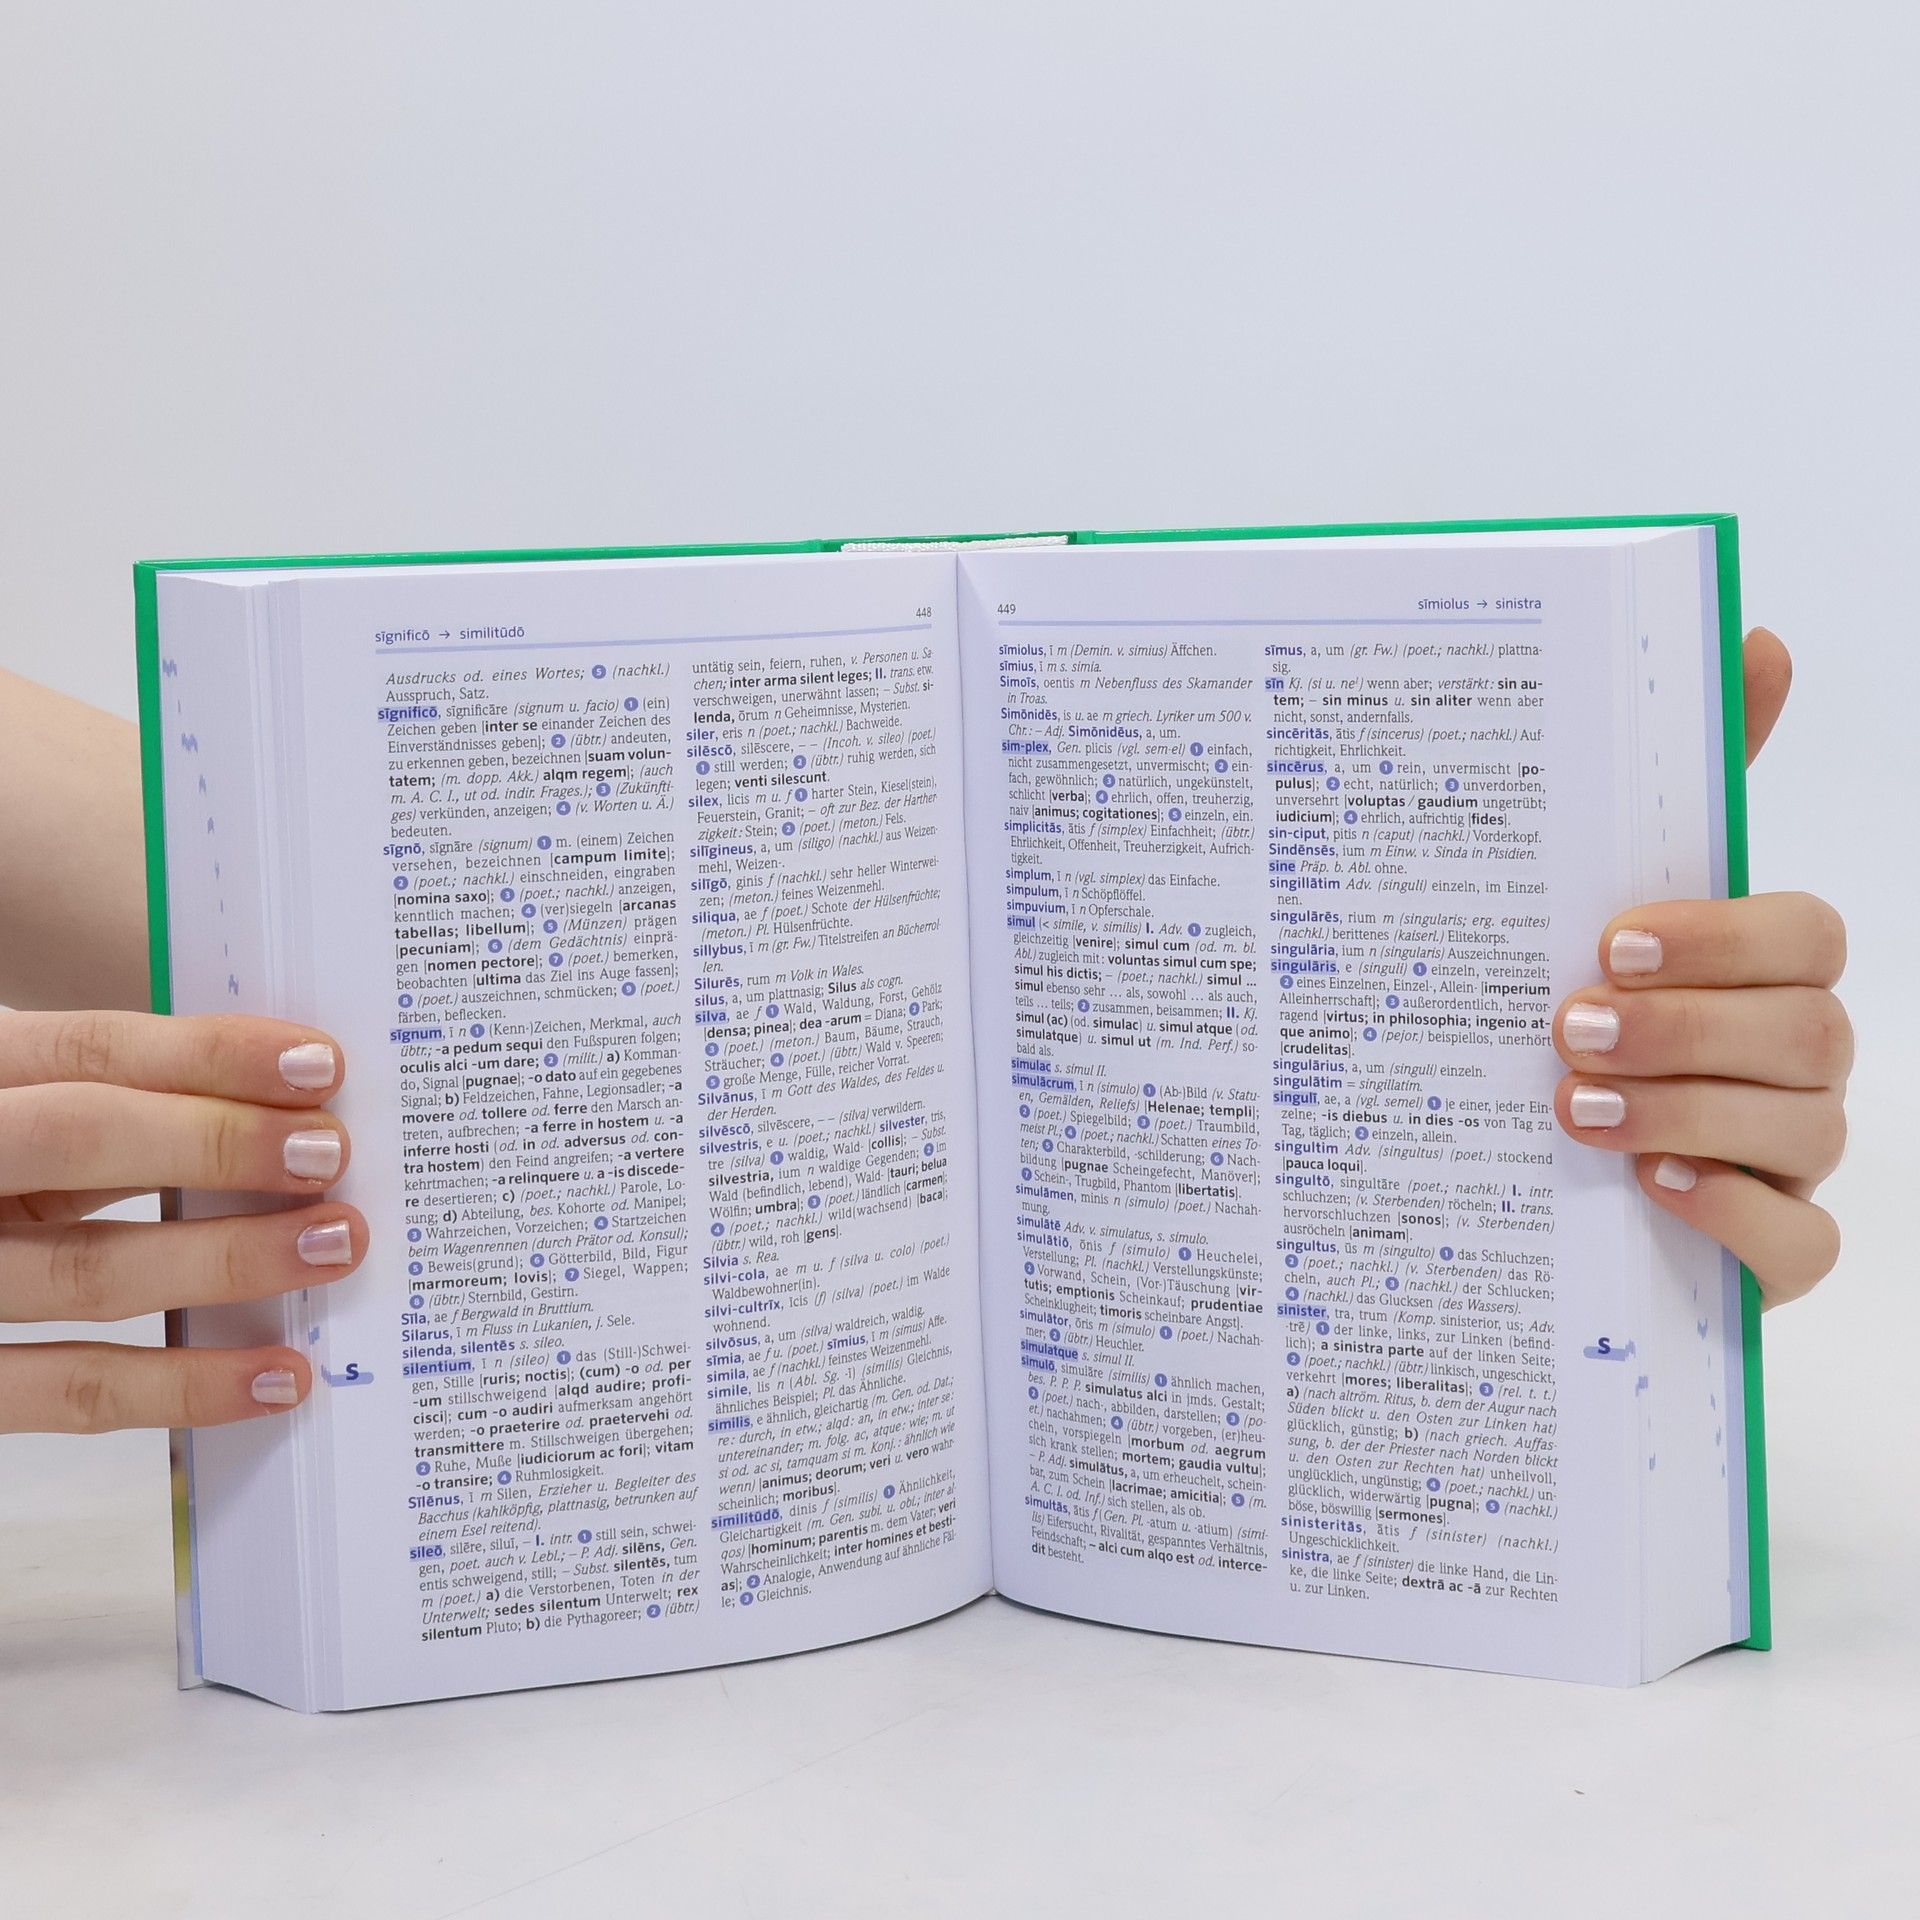 sīgnificō → similitūdō
448
Ausdrucks od. eines Wortes; 5 (nachkl.)
Ausspruch, Satz.
sīgnificō, sīgnificāre (signum u. facio) 1 (ein)
Zeichen geben |inter se einander Zeichen des
Einverständnisses geben|; 2 (übtr.) andeuten,
zu erkennen geben, bezeichnen |suam volun-
tatem; (m. dopp. Akk.) alqm regem|; (auch
m. A. C. I., ut od. indir. Frages.); 3 (Zukünfti-
ges) verkünden, anzeigen; 4 (v. Worten u. Ä.)
bedeuten.
sīgnō, sīgnāre (signum) 1 m. (einem) Zeichen
versehen, bezeichnen |campum limite|;
2 (poet.; nachkl.) einschneiden, eingraben
|nomina saxo|; 3 (poet.; nachkl.) anzeigen,
kenntlich machen; 4 (ver)siegeln |arcanas
tabellas; libellum|; 5 (Münzen) prägen
|pecuniam|; 6 (dem Gedächtnis) einprä-
gen |nomen pectore|; 7 (poet.) bemerken,
beobachten |ultima das Ziel ins Auge fassen|;
8 (poet.) auszeichnen, schmücken; 9 (poet.)
färben, beflecken.
sīgnum, ī n 1 (Kenn-)Zeichen, Merkmal, auch
übtr.; -a pedum sequi den Fußspuren folgen;
oculis alci -um dare; 2 (milit.) a) Komman-
do, Signal |pugnae|; -o dato auf ein gegebenes
Signal; b) Feldzeichen, Fahne, Legionsadler; -a
movere od. tollere od. ferre den Marsch an-
treten, aufbrechen; -a ferre in hostem u. -a
inferre hosti (od. in od. adversus od. con-
tra hostem) den Feind angreifen; -a vertere
kehrtmachen; -a relinquere u. a -is discede-
re desertieren; c) (poet.; nachkl.) Parole, Lo-
sung; d) Abteilung, bes. Kohorte od. Manipel;
3 Wahrzeichen, Vorzeichen; 4 Startzeichen
beim Wagenrennen (durch Prätor od. Konsul);
5 Beweis(grund); 6 Götterbild, Bild, Figur
|marmoreum; Iovis|; 7 Siegel, Wappen;
8 (übtr.) Sternbild, Gestirn.
Sīla, ae f Bergwald in Bruttium.
Silarus, ī m Fluss in Lukanien, j. Sele.
silenda, silentēs s. sileo.
silentium, ī n (sileo) 1 das (Still-)Schwei-
gen, Stille |ruris; noctis|; (cum) -o od. per
-um stillschweigend |alqd audire; profi-
cisci|; cum -o audiri aufmerksam angehört
werden; -o praeterire od. praetervehi od.
transmittere m. Stillschweigen übergehen;
2 Ruhe, Muße |iudiciorum ac fori|; vitam
-o transire; 4 Ruhmlosigkeit.
Sīlēnus, ī m Silen, Erzieher u. Begleiter des
Bacchus (kahlköpfig, plattnasig, betrunken auf
einem Esel reitend).
sileō, silēre, siluī, – I. intr. 1 still sein, schwei-
gen, poet. auch v. Lebl.; – P. Adj. silēns, Gen.
entis schweigend, still; – Subst. silentēs, tum
m (poet.) a) die Verstorbenen, Toten in der
Unterwelt; sedes silentum Unterwelt; rex
silentum Pluto; b) die Pythagoreer; 2 (übtr.)
untätig sein, feiern, ruhen, v. Personen u. Sa-
chen; inter arma silent leges; II. trans. etw.
verschweigen, unerwähnt lassen; – Subst. si-
lenda, ōrum n Geheimnisse, Mysterien.
siler, eris n (poet.; nachkl.) Bachweide.
silēscō, silēscere, – – (Incoh. v. sileo) (poet.)
1 still werden; 2 (übtr.) ruhig werden, sich
legen; venti silescunt.
silex, licis m u. f 1 harter Stein, Kiesel(stein),
Feuerstein, Granit; – oft zur Bez. der Harther-
zigkeit: Stein; 2 (poet.) (meton.) Fels.
silīgineus, a, um (siligo) (nachkl.) aus Weizen-
mehl, Weizen-.
silīgō, ginis f (nachkl.) sehr heller Winterwei-
zen; (meton.) feines Weizenmehl.
siliqua, ae f (poet.) Schote der Hülsenfrüchte;
(meton.) Pl. Hülsenfrüchte.
sillybus, ī m (gr. Fw.) Titelstreifen an Bücherrol-
len.
Silurēs, rum m Volk in Wales.
silus, a, um plattnasig; Silus als cogn.
silva, ae f 1 Wald, Waldung, Forst, Gehölz
|densa; pinea|; dea -arum = Diana; 2 Park;
3 (poet.) (meton.) Baum, Bäume, Strauch,
Sträucher; 4 (poet.) (übtr.) Wald v. Speeren;
5 große Menge, Fülle, reicher Vorrat.
Silvānus, ī m Gott des Waldes, des Feldes u.
der Herden.
silvēscō, silvēscere, – – (silva) verwildern.
silvestris, e u. (poet.; nachkl.) silvester, tris,
tre (silva) 1 waldig, Wald- |collis|; – Subst.
silvestria, ium n waldige Gegenden; 2 im
Wald (befindlich, lebend), Wald- |tauri; belua
Wölfin; umbra|; 3 (poet.) ländlich |carmen|;
4 (poet.; nachkl.) wild(wachsend) |baca|;
(übtr.) wild, roh |gens|.
Silvia s. Rea.
silvi-cola, ae m u. f (silva u. colo) (poet.)
Waldbewohner(in).
silvi-cultrīx, īcis (f) (silva) (poet.) im Walde
wohnend.
silvōsus, a, um (silva) waldreich, waldig.
sīmia, ae f u. (poet.) sīmius, ī m (simus) Affe.
simila, ae f (nachkl.) feinstes Weizenmehl.
simile, lis n (Abl. Sg. -ī) (similis) Gleichnis,
ähnliches Beispiel; Pl. das Ähnliche.
similis, e ähnlich, gleichartig (m. Gen. od. Dat.;
re: durch, in etw.; alqd: an, in etw.; inter se:
untereinander; m. folg. ac, atque: wie; m. ut
si od. ac si, tamquam si m. Konj.: ähnlich wie
wenn) |animus; deorum; veri u. vero wahr-
scheinlich; moribus|.
similitūdō, dinis f (similis) 1 Ähnlichkeit,
Gleichartigkeit (m. Gen. subi. u. obi.; inter al-
qos) |hominum; parentis m. dem Vater; veri
Wahrscheinlichkeit; inter homines et besti-
as|; 2 Analogie, Anwendung auf ähnliche Fäl-
le; 3 Gleichnis.
S
449
sīmiolus → sinistra
sīmiolus, ī m (Demin. v. simius) Äffchen.
sīmius, ī m s. simia.
Simoīs, oentis m Nebenfluss des Skamander
in Troas.
Simōnidēs, is u. ae m griech. Lyriker um 500 v.
Chr.; – Adj. Simōnidēus, a, um.
sim-plex, Gen. plicis (vgl. sem-el) 1 einfach,
nicht zusammengesetzt, unvermischt; 2 ein-
fach, gewöhnlich; 3 natürlich, ungekünstelt,
schlicht |verba|; 4 ehrlich, offen, treuherzig,
naiv |animus; cogitationes|; 5 einzeln, ein.
simplicitās, ātis f (simplex) Einfachheit; (übtr.)
Ehrlichkeit, Offenheit, Treuherzigkeit, Aufrich-
tigkeit.
simplum, ī n (vgl. simplex) das Einfache.
simpulum, ī n Schöpflöffel.
simpuvium, ī n Opferschale.
simul (< simile, v. similis) I. Adv. 1 zugleich,
gleichzeitig |venire|; simul cum (od. m. bl.
Abl.) zugleich mit: voluntas simul cum spe;
simul his dictis; – (poet.; nachkl.) simul ...
simul ebenso sehr ... als, sowohl ... als auch,
teils ... teils; 2 zusammen, beisammen; II. Kj.
simul (ac) (od. simulac) u. simul atque (od.
simulatque) u. simul ut (m. Ind. Perf.) so-
bald als.
simulac s. simul II.
simulācrum, ī n (simulo) 1 (Ab-)Bild (v. Statu-
en, Gemälden, Reliefs) |Helenae; templi|;
2 (poet.) Spiegelbild; 3 (poet.) Traumbild,
meist Pl.; 4 (poet.; nachkl.) Schatten eines To-
ten; 5 Charakterbild, -schilderung; 6 Nach-
bildung |pugnae Scheingefecht, Manöver|;
7 Schein-, Trugbild, Phantom |libertatis|.
simulāmen, minis n (simulo) (poet.) Nachah-
mung.
simulātē Adv. v. simulatus, s. simulo.
simulātiō, ōnis f (simulo) 1 Heuchelei,
Verstellung; Pl. (nachkl.) Verstellungskünste;
2 Vorwand, Schein, (Vor-)Täuschung |vir-
tutis; emptionis Scheinkauf; prudentiae
Scheinklugheit; timoris scheinbare Angst|.
simulātor, ōris m (simulo) 1 (poet.) Nachah-
mer; 2 (übtr.) Heuchler.
simulatque s. simul II.
simulō, simulāre (similis) 1 ähnlich machen,
bes. P. P. P. simulatus alci in jmds. Gestalt;
2 (poet.) nach-, abbilden, darstellen; 3 (po-
et.) nachahmen; 4 (übtr.) vorgeben, (er)heu-
cheln, vorspiegeln |morbum od. aegrum
sich krank stellen; mortem; gaudia vultu|;
– P. Adj. simulātus, a, um erheuchelt, schein-
bar, zum Schein |lacrimae; amicitia|; 5 (m.
A. C. I. od. Inf.) sich stellen, als ob.
simultās, ātis f (Gen. Pl. -atum u. -atium) (simi-
lis) Eifersucht, Rivalität, gespanntes Verhältnis,
Feindschaft; – alci cum alqo est od. interce-
dit besteht.
sīmus, a, um (gr. Fw.) (poet.; nachkl.) plattna-
sig.
sīn Kj. (si u. ne¹) wenn aber; verstärkt: sin au-
tem; – sin minus u. sin aliter wenn aber
nicht, sonst, andernfalls.
sincēritās, ātis f (sincerus) (poet.; nachkl.) Auf-
richtigkeit, Ehrlichkeit.
sincērus, a, um 1 rein, unvermischt |po-
pulus|; 2 echt, natürlich; 3 unverdorben,
unversehrt |voluptas / gaudium ungetrübt;
iudicium|; 4 ehrlich, aufrichtig |fides|.
sin-ciput, pitis n (caput) (nachkl.) Vorderkopf.
Sindēnsēs, ium m Einw. v. Sinda in Pisidien.
sine Präp. b. Abl. ohne.
singillātim Adv. (singuli) einzeln, im Einzel-
nen.
singulārēs, rium m (singularis; erg. equites)
(nachkl.) berittenes (kaiserl.) Elitekorps.
singulāria, ium n (singularis) Auszeichnungen.
singulāris, e (singuli) 1 einzeln, vereinzelt;
2 eines Einzelnen, Einzel-, Allein- |imperium
Alleinherrschaft|; 3 außerordentlich, hervor-
ragend |virtus; in philosophia; ingenio at-
que animo|; 4 (pejor.) beispiellos, unerhört
|crudelitas|.
singulārius, a, um (singuli) einzeln.
singulātim = singillatim.
singulī, ae, a (vgl. semel) 1 je einer, jeder Ein-
zelne; -is diebus u. in dies -os von Tag zu
Tag, täglich; 2 einzeln, allein.
singultim Adv. (singultus) (poet.) stockend
|pauca loqui|.
singultō, singultāre (poet.; nachkl.) I. intr.
schluchzen; (v. Sterbenden) röcheln; II. trans.
hervorschluchzen |sonos|; (v. Sterbenden)
ausröcheln |animam|.
singultus, ūs m (singulto) 1 das Schluchzen;
2 (poet.; nachkl.) (v. Sterbenden) das Rö-
cheln, auch Pl.; 3 (nachkl.) der Schlucken;
4 (nachkl.) das Glucksen (des Wassers).
sinister, tra, trum (Komp. sinisterior, us; Adv.
-trē) 1 der linke, links, zur Linken (befind-
lich); a sinistra parte auf der linken Seite;
2 (poet.; nachkl.) (übtr.) linkisch, ungeschickt,
verkehrt |mores; liberalitas|; 3 (rel. t. t.)
a) (nach altröm. Ritus, b. dem der Augur nach
Süden blickt u. den Osten zur Linken hat)
glücklich, günstig; b) (nach griech. Auffas-
sung, b. der der Priester nach Norden blickt
u. den Osten zur Rechten hat) unheilvoll,
unglücklich, ungünstig; 4 (poet.; nachkl.) un-
glücklich, widerwärtig |pugna|; 5 (nachkl.)
böse, böswillig |sermones|.
sinisteritās, ātis f (sinister) (nachkl.)
Ungeschicklichkeit.
sinistra, ae f (sinister) die linke Hand, die Lin-
ke, die linke Seite; dextrā ac -ā zur Rechten
u. zur Linken.
S